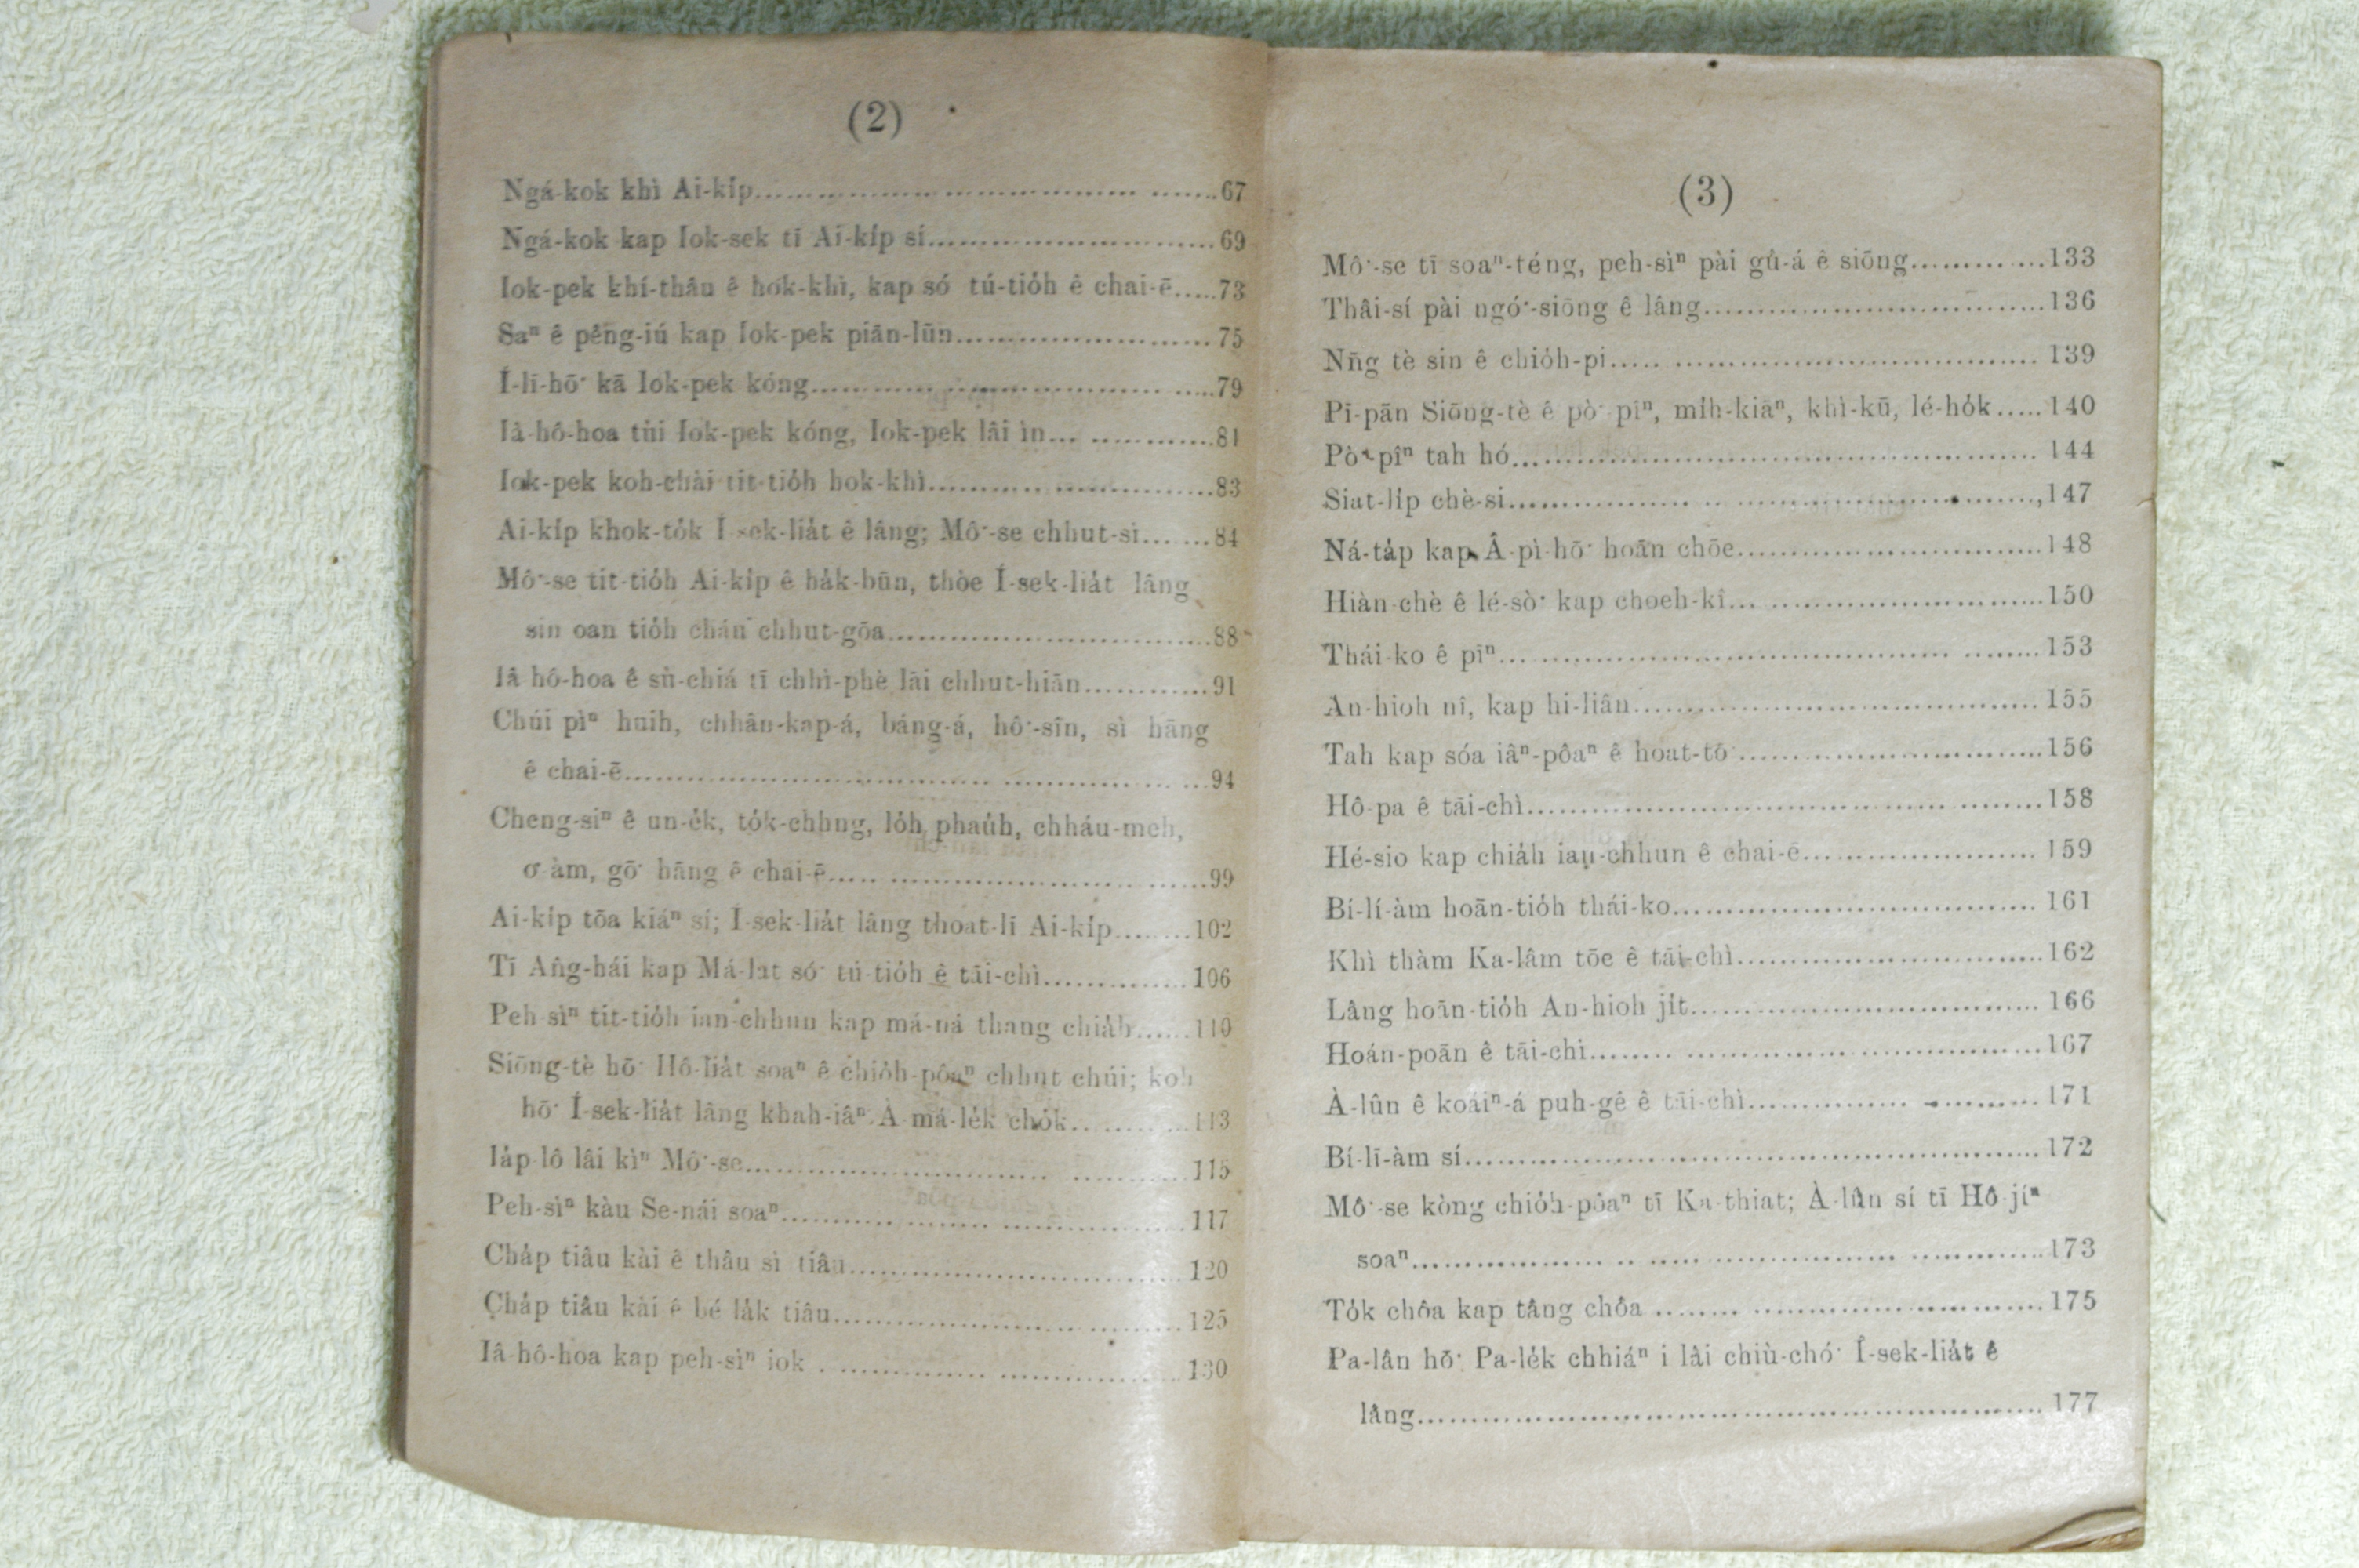 (2)
Ngá-kok khì Ai-ki̍p........................................67
Ngá-kok kap Iok-sek tī Ai-ki̍p sí............................69
Iok-pek khí-thâu ê hok-khì, kap só͘ tú-tio̍h ê chai-ē.....73
Saⁿ ê pêng-iú kap Iok-pek piān-lūn........................75
Í-lī-hō͘ kā Iok-pek kóng........................................79
Iâ-hô-hoa tùi Iok-pek kóng, Iok-pek lâi ìn................81
Iok-pek koh-chài tit-tio̍h hok-khì............................83
Ai-ki̍p khok-to̍k Í-sek-lia̍t ê lâng; Mô͘-se chhut-sì.......84
Mô͘-se tit-tio̍h Ai-ki̍p ê ha̍k-būn, thòe Í-sek-lia̍t lâng
sin oan tio̍h chán chhut-gōa................................88
Iâ-hô-hoa ê sù-chiá tī chhì-phè lāi chhut-hiān............91
Chúi pìⁿ huih, chhân-kap-á, báng-á, hô͘-sîn, sì hāng
ê chai-ē........................................................94
Cheng-siⁿ ê un-e̍k, to̍k-chhng, lo̍h phau̍h, chháu-meh,
o͘-àm, gō͘ hāng ê chai-ē....................................99
Ai-ki̍p tōa kiáⁿ sí; Í-sek-lia̍t lâng thoat-lī Ai-ki̍p........102
Tī Âng-hái kap Má-lat só͘ tú-tio̍h ê tāi-chì...............106
Peh-sìⁿ tit-tio̍h ian-chhun kap má-ná thang chia̍h......110
Siōng-tè hō͘ Hô-lia̍t soaⁿ ê chio̍h-pôaⁿ chhut chúi; koh
hō͘ Í-sek-lia̍t lâng khah-iâⁿ À-má-le̍k cho̍k............113
Ia̍p-lô lâi kìⁿ Mô͘-se........................................115
Peh-sìⁿ kàu Se-nái soaⁿ....................................117
Cha̍p tiâu kài ê thâu sì tiâu................................120
Cha̍p tiâu kài ê bé la̍k tiâu................................125
Iâ-hô-hoa kap peh-sìⁿ iok ................................130
(3)
Mô͘-se tī soaⁿ-téng, peh-sìⁿ pài gû-á ê siōng.............133
Thâi-sí pài ngó͘-siōng ê lâng................................136
Nn̄g tè sin ê chio̍h-pi........................................139
Pī-pān Siōng-tè ê pò͘-pîⁿ, mi̍h-kiāⁿ, khì-kū, lé-ho̍k.....140
Pò͘-pîⁿ tah hó................................................144
Siat-li̍p chè-si................................................147
Ná-ta̍p kap Â-pì-hō͘ hoān chōe............................148
Hiàn-chè ê lé-sò͘ kap choeh-kî............................150
Thái-ko ê pīⁿ................................................153
An-hioh nî, kap hi-liân....................................155
Tah kap sóa iâⁿ-pôaⁿ ê hoat-tō͘............................156
Hô-pa ê tāi-chì................................................158
Hé-sio kap chia̍h iau-chhun ê chai-ē........................159
Bí-lí-àm hoān-tio̍h thái-ko................................161
Khì thàm Ka-lâm tōe ê tāi-chì............................162
Lâng hoān-tio̍h An-hioh ji̍t................................166
Hoán-poān ê tāi-chì........................................167
À-lûn ê koáiⁿ-á puh-gê ê tāi-chì............................171
Bí-lī-àm sí....................................................172
Mô͘-se kòng chio̍h-pôaⁿ tī Ka-thiat; À-lûn sí tī Hô-jíⁿ
soaⁿ........................................................173
To̍k chôa kap tâng chôa ....................................175
Pa-lân hō͘ Pa-le̍k chhiáⁿ i lâi chiù-chó͘ Í-sek-lia̍t ê
lâng........................................................177